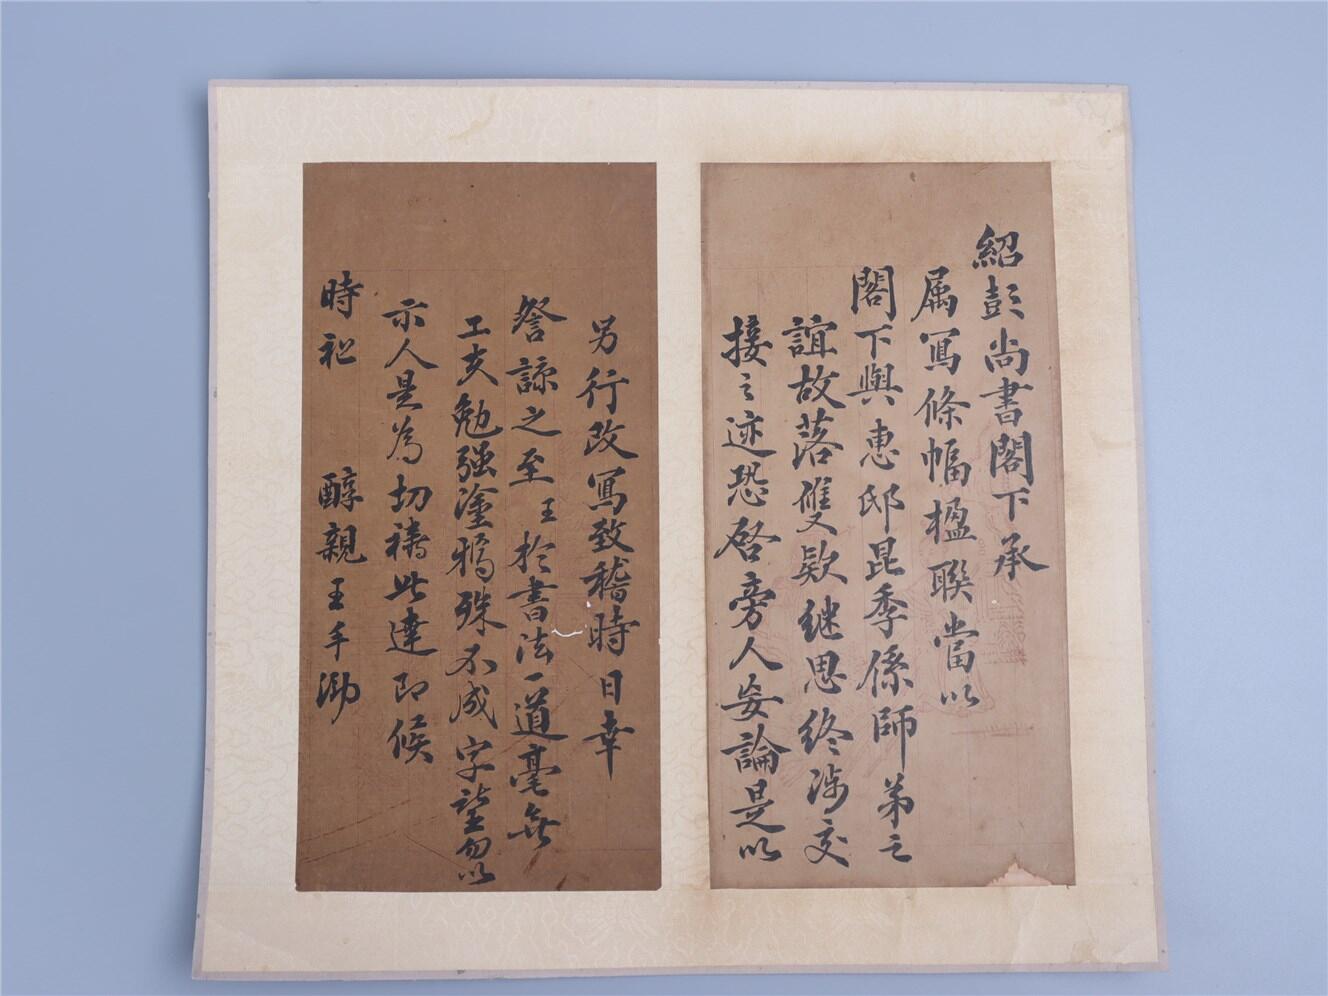 紹彭尚書閣下承
属寫條幅楹聯當以
閣下與惠邸昆季係師弟之
誼故落雙款继思终涉交
接之迹恐啓旁人妄論是以
另行改寫致稽時日幸
詧諒之至王於書法一道毫無
工夫勉强塗鴉殊不成字望勿以
示人是為切禱此達即候
時祉 醇親王手泐